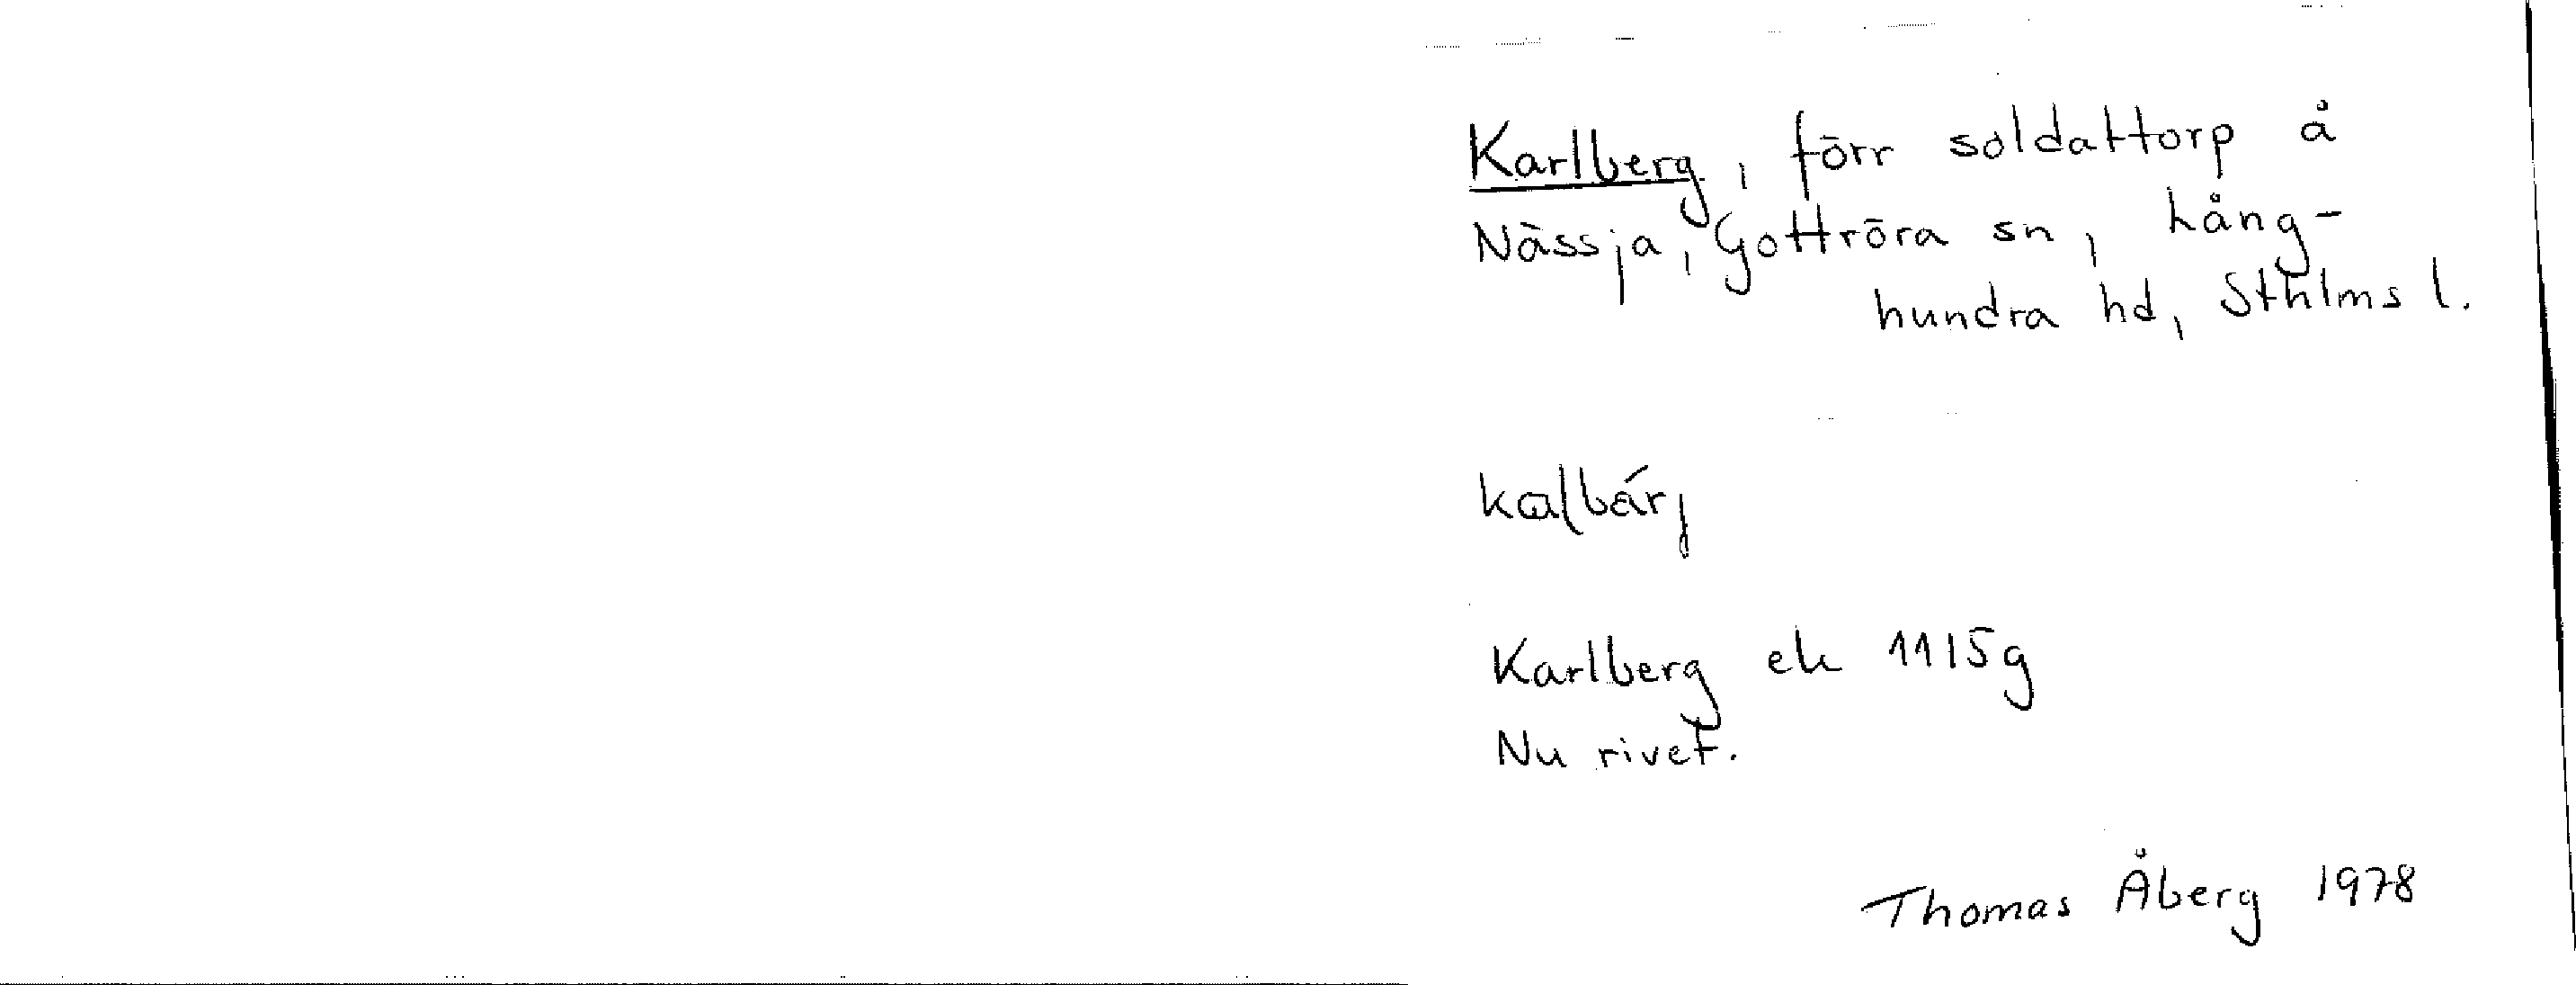 Karlberg, förr soldattorp å
Nässja, Gottröra sn, Lång-
hundra hd, Sthlms l.
Karlberg ek 1115g
Nu rivet.
Thomas Åberg 1978